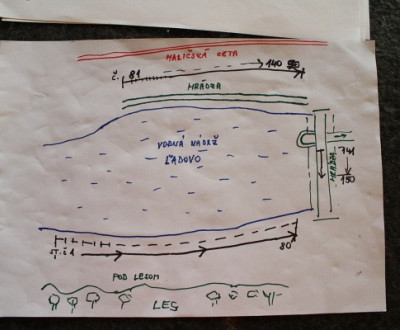 HALIČSKÁ CESTA
č. 81 140
HRÁDZA
VODNÁ NÁDRŽ
ĽADOVO
HRÁDZA
141
150
št. č 1
80
POD LESOM
LES